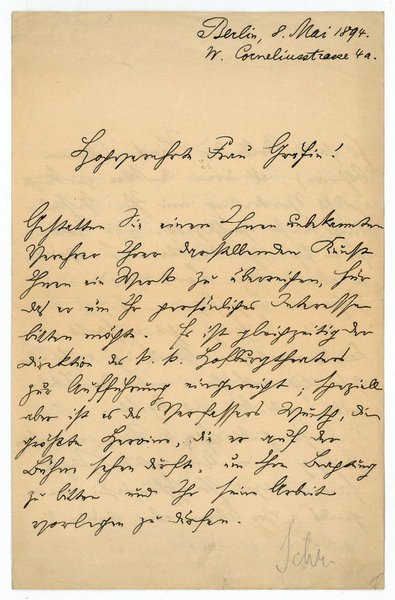 Berlin, 8. Mai 1894.
W. Corneliusstrasse 4a.
Hochverehrte Frau Gräfin!
Gestatten Sie einem Ihnen unbekannten
Verehrer Ihrer darstellenden Kunst
Ihnen ein Werk zu überreichen, für
das er um Ihr persönliches Interesse
bitten möchte. Es ist gleichzeitig der
Direktion des k. k. Hofburgtheaters
zur Aufführung eingereicht; speziell
aber ist es des Verfassers Wunsch, die
größte Heroine, die er auf der
Bühne sehen durfte, um Ihre Beachtung
zu bitten und Ihr sein Arbeit
vorlegen zu dürfen.